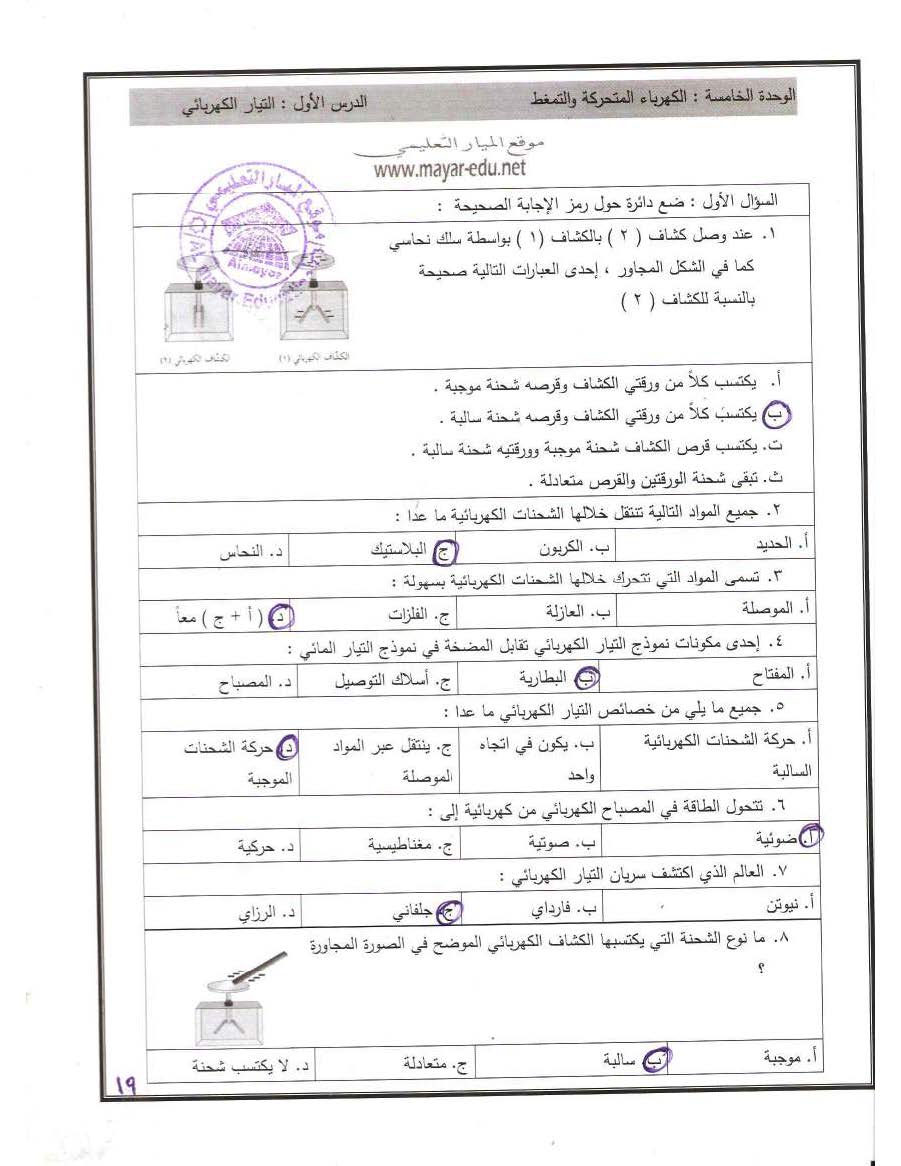 الوحدة الخامسة : الكهرباء المتحركة والتمغط الدرس الأول : التيار الكهربائي
موقع الميار التعليمي
www.mayar-edu.net
السؤال الأول : ضع دائرة حول رمز الإجابة الصحيحة :
١. عند وصل كشاف ( ٢ ) بالكشاف ( ١ ) بواسطة سلك نحاسي
كما في الشكل المجاور ، إحدى العبارات التالية صحيحة
بالنسبة للكشاف ( ٢ )
الكشاف الكهربائي (١) الكشاف الكهربائي (٢)
أ. يكتسب كلاً من ورقتي الكشاف وقرصه شحنة موجبة .
ب يكتسب كلاً من ورقتي الكشاف وقرصه شحنة سالبة .
ت. يكتسب قرص الكشاف شحنة موجبة وورقتيه شحنة سالبة .
ث. تبقى شحنة الورقتين والقرص متعادلة .
٢. جميع المواد التالية تنتقل خلالها الشحنات الكهربائية ما عدا :
أ. الحديد ب. الكربون ج البلاستيك د. النحاس
٣. تسمى المواد التي تتحرك خلالها الشحنات الكهربائية بسهولة :
أ. الموصلة ب. العازلة ج. الفلزات د. ( أ + ج ) معاً
٤. إحدى مكونات نموذج التيار الكهربائي تقابل المضخة في نموذج التيار المائي :
أ. المفتاح ب البطارية ج. أسلاك التوصيل د. المصباح
٥. جميع ما يلي من خصائص التيار الكهربائي ما عدا :
أ. حركة الشحنات الكهربائية ب. يكون في اتجاه ج. ينتقل عبر المواد د حركة الشحنات
السالبة واحد الموصلة الموجبة
٦. تتحول الطاقة في المصباح الكهربائي من كهربائية إلى :
أ. ضوئية ب. صوتية ج. مغناطيسية د. حركية
٧. العالم الذي اكتشف سريان التيار الكهربائي :
أ. نيوتن ب. فارداي ج جلفاني د. الرازاي
٨. ما نوع الشحنة التي يكتسبها الكشاف الكهربائي الموضح في الصورة المجاورة
؟
أ. موجبة ب سالبة ج. متعادلة د. لا يكتسب شحنة
١٩